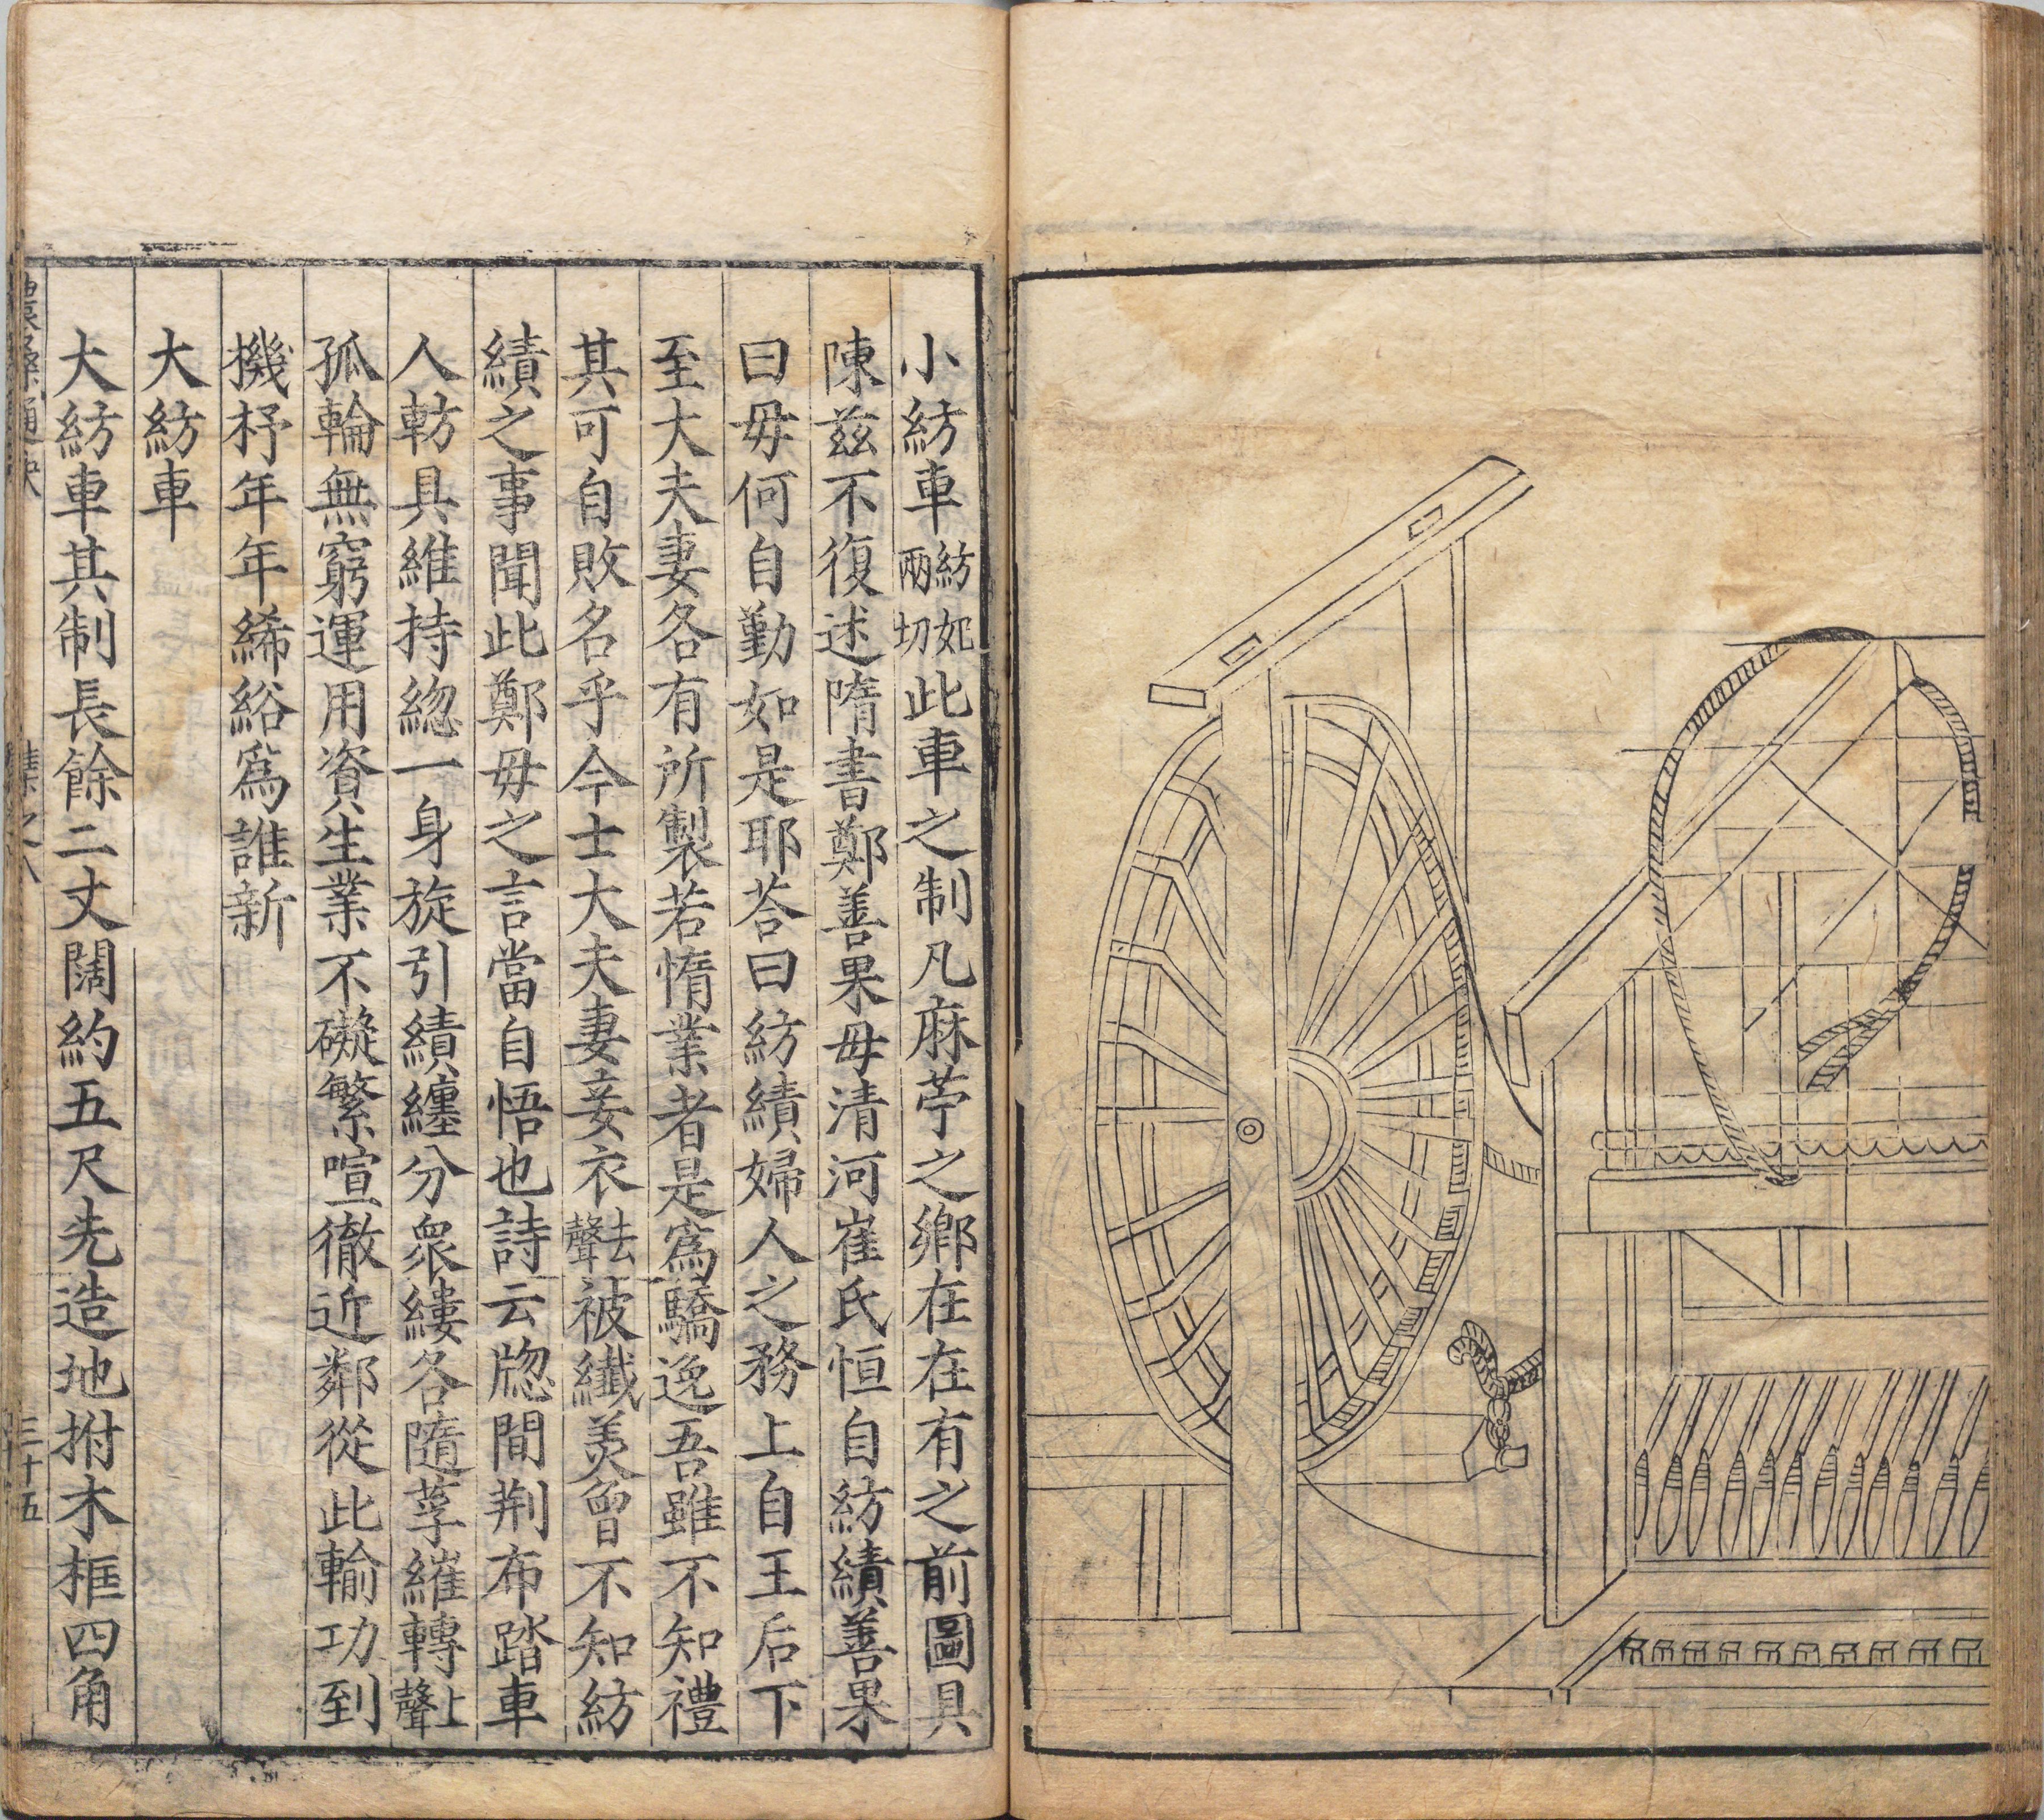 小紡車紡妃兩切此車之制凡麻苧之鄉在在有之前圖具
陳兹不復述隋書鄭善果母清河崔氏恒自紡績善果
曰母何自勤如是耶荅曰紡績婦人之務上自王后下
至大夫妻各有所製若惰業者是爲驕逸吾雖不知禮
其可自敗名乎今士大夫妻妾衣去聲被纖羙曾不知紡
績之事聞此鄭母之言當自悟也詩云牕間荆布踏車
人軿具維持緫一身旋引績纏分衆縷各隨莩維轉上聲
孤輪無窮運用資生業不礙繁喧徹近鄰從此輸功到
機杼年年絺綌爲誰新
大紡車
大紡車其制長餘二丈闊約五尺先造地拊木框四角
農桑通訣
集之八
三十五